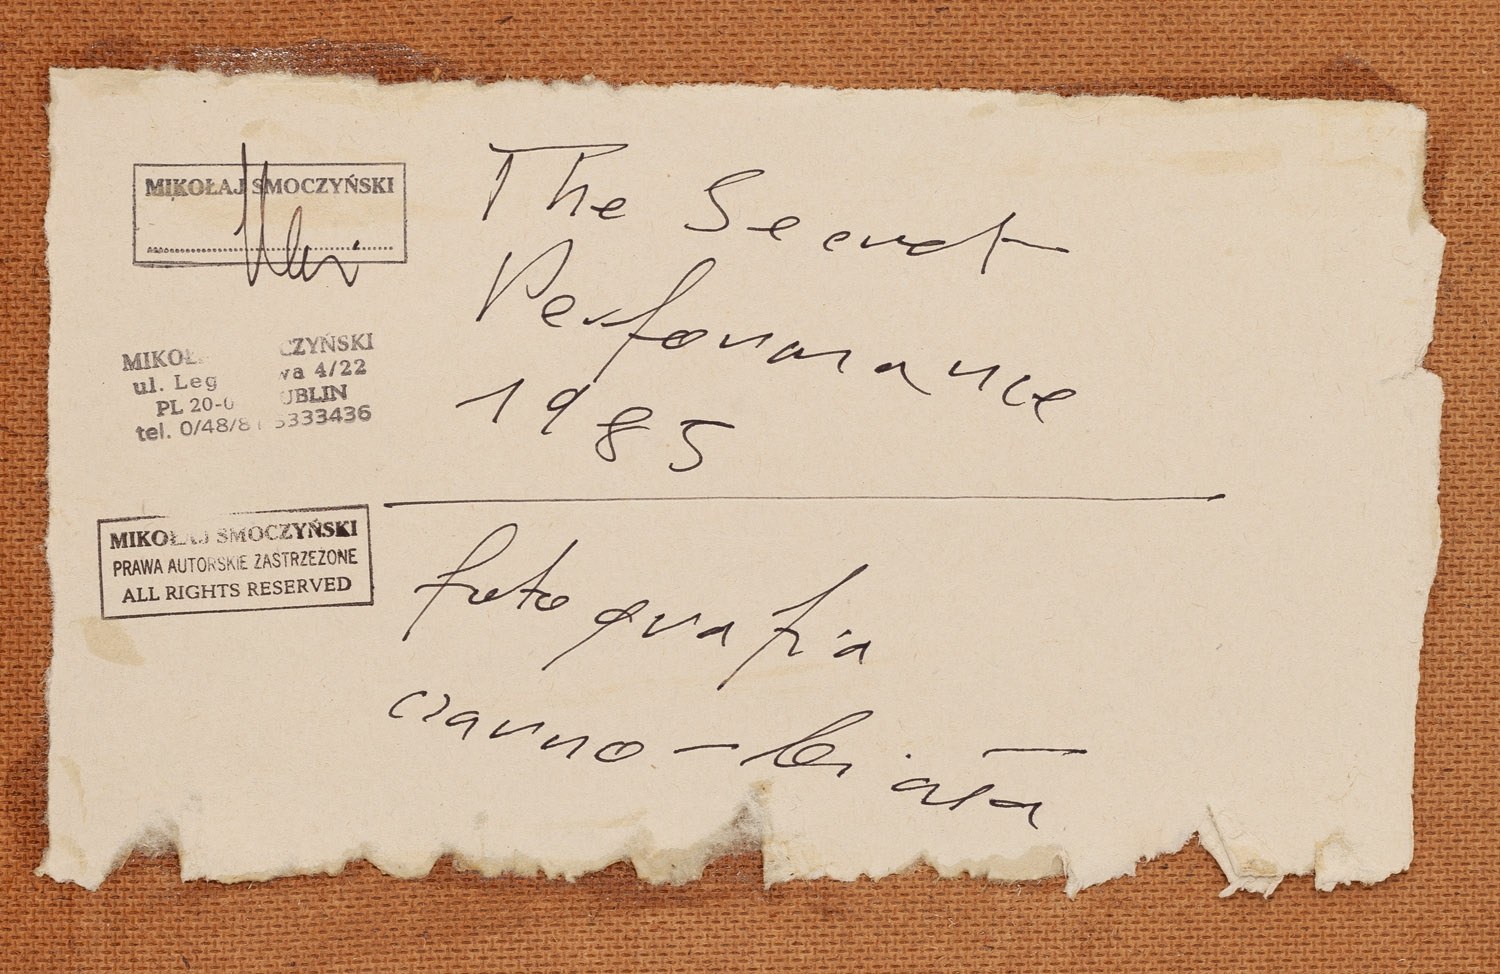 MIKOŁAJ SMOCZYŃSKI
The Secret
Performance
1985
MIKOŁ CZYŃSKI
ul. Leg wa 4/22
PL 20-0 UBLIN
tel. 0/48/81 5333436
MIKOŁAJ SMOCZYŃSKI
PRAWA AUTORSKIE ZASTRZEŻONE
ALL RIGHTS RESERVED
fotografia
czarno-biała